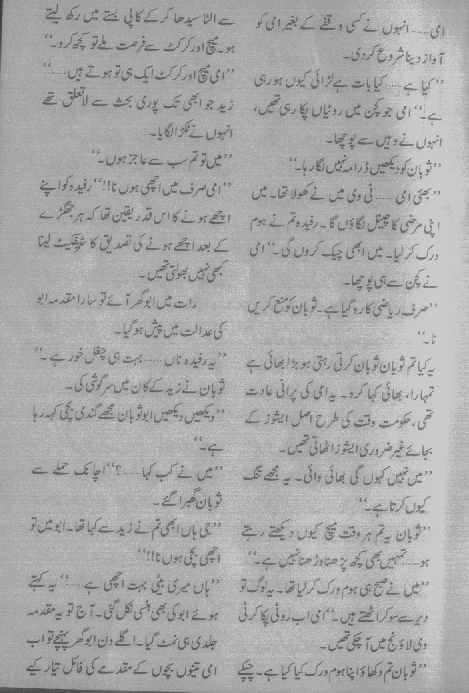 امی...... انہوں نے کسی وقفے کے بغیر امی کو
آواز دینا شروع کردی۔
”کیا ہے...... کیا بات ہے لڑائی کیوں ہورہی
ہے۔“ امی جو کچن میں روٹیاں پکا رہی تھیں،
انہوں نے وہیں سے پوچھا۔
”ثوبان کو دیکھیں ڈرامہ نہیں لگا رہا۔“
”بھئی امی...... ٹی وی میں نے کھولا تھا۔ میں
اپنی مرضی کا چینل لگاؤں گا۔ رفیدہ تم نے ہوم
ورک کرلیا۔ میں ابھی چیک کروں گی۔“ امی
نے کچن سے ہی پوچھا۔
”صرف ریاضی کا رہ گیا ہے۔ ثوبان کو منع کریں
نا۔“
یہ کیا تم ثوبان ثوبان کرتی رہتی ہو بڑا بھائی ہے
تمہارا، بھائی کہا کرو۔ یہ امی کی پرانی عادت
تھی، حکومت وقت کی طرح اصل ایشوز کے
بجائے غیر ضروری ایشوز اٹھاتی تھیں۔
”میں نہیں کہوں گی بھائی وائی۔ یہ مجھے تنگ
کیوں کرتا ہے۔“
”ثوبان یہ تم ہر وقت میچ کیوں دیکھتے رہتے
ہو...... تمہیں بھی کچھ پڑھنا وڑھنا نہیں ہے۔“
”میں نے صبح ہی ہوم ورک کرلیا تھا۔ یہ لوگ تو
دیر سے سو کر اٹھتے ہیں۔“ امی اب روٹی پکا کر ٹی
وی لاؤنج میں آچکی تھیں۔
”ثوبان تم دکھاؤ اپنا ہوم ورک کیا کیا ہے۔ چپکے
سے الٹا سیدھا کرکے کاپی بستے میں رکھ لیتے
ہو۔ میچ اور کرکٹ سے فرصت ملے تو کچھ کرو۔“
”امی میچ اور کرکٹ ایک ہی تو ہوتے ہیں......“
زید جو ابھی تک پوری بحث سے لاتعلق تھے
انہوں نے ٹکڑا لگایا۔
”میں تو تم سب سے عاجز ہوں۔“
”امی صرف میں اچھی ہوں نا!!“ رفیدہ کو اپنے
اچھے ہونے کا اس قدر یقین تھا کہ ہر جھگڑے
کے بعد اچھے ہونے کی تصدیق کا سٹیفکیٹ لینا
کبھی نہیں بھولتی تھیں۔
رات میں ابو گھر آئے تو سارا مقدمہ ابو
کی عدالت میں پیش ہوگیا۔
”یہ رفیدہ ناں...... بہت ہی چغل خور ہے۔“
ثوبان نے زید کے کان میں سرگوشی کی۔
”دیکھیں دیکھیں ابو ثوبان مجھے گندی بچی کہہ رہا
ہے۔“
”میں نے کب کہا......؟“ اچانک حملے سے
ثوبان گھبرا گئے۔
”جی ہاں ابھی تم نے زید سے کہا تھا۔ ابو میں تو
اچھی بچی ہوں نا!!“
”ہاں میری بیٹی بہت اچھی ہے......“ یہ کہتے
ہوئے ابو کی بھی ہنسی نکل گئی۔ آج تو یہ مقدمہ
جلدی ہی نمٹ گیا۔ اگلے دن ابو گھر پہنچے تو اب
امی تینوں بچوں کے مقدمے کی فائل تیار کیے